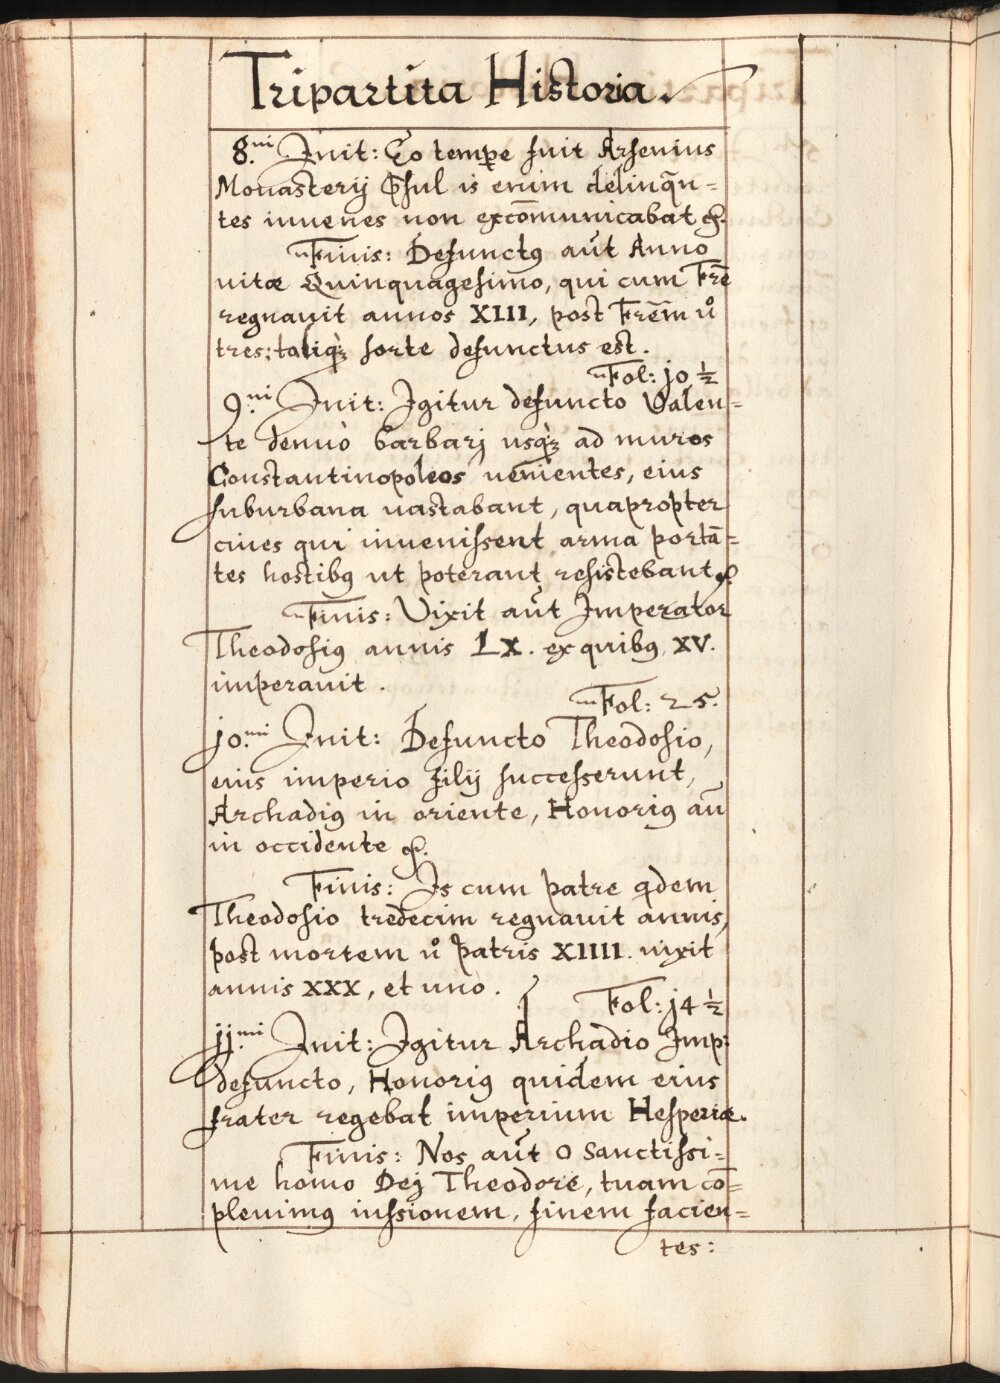 Tripartita Historia.
8.ui Init: Eo tempe fuit Arsenius
Monasterij Psul is enim delinqn=
tes iuuenes non excōmunicabat &.
Finis: Defunctus aūt Anno
uitæ Quinquagesimo, qui cum Frē
regnauit annos XIII, post Frēm uº
tres: taliq; sorte defunctus est.
Fol: jo ½
9.ui Init: Igitur defuncto Valen=
te denuò barbarj usq; ad muros
Constantinopoleos uenientes, eius
suburbana uastabant, quapropter
ciues qui inuenissent arma portā=
tes hostibus ut poterant resistebant &.
Finis: Vixit aūt Imperator
Theodosius annis LX. ex quibus XV.
imperauit.
Fol: 25.
jo.mi Init: Defuncto Theodosio,
eius imperio filij successerunt,
Archadius in oriente, Honorius aū
in occidente &.
Finis: Is cum patre qdem
Theodosio tredecim regnauit annis,
post mortem uº patris XIIII. uixit
annis XXX, et uno.
Fol: j4 ½
jj.mi Init: Igitur Archadio Imp:
defuncto, Honorius quidem eius
frater regebat imperium Hesperiæ.
Finis: Nos aūt o sanctissi=
me homo Dej Theodore, tuam cō=
pleuimus iussionem, finem facien=
tes: